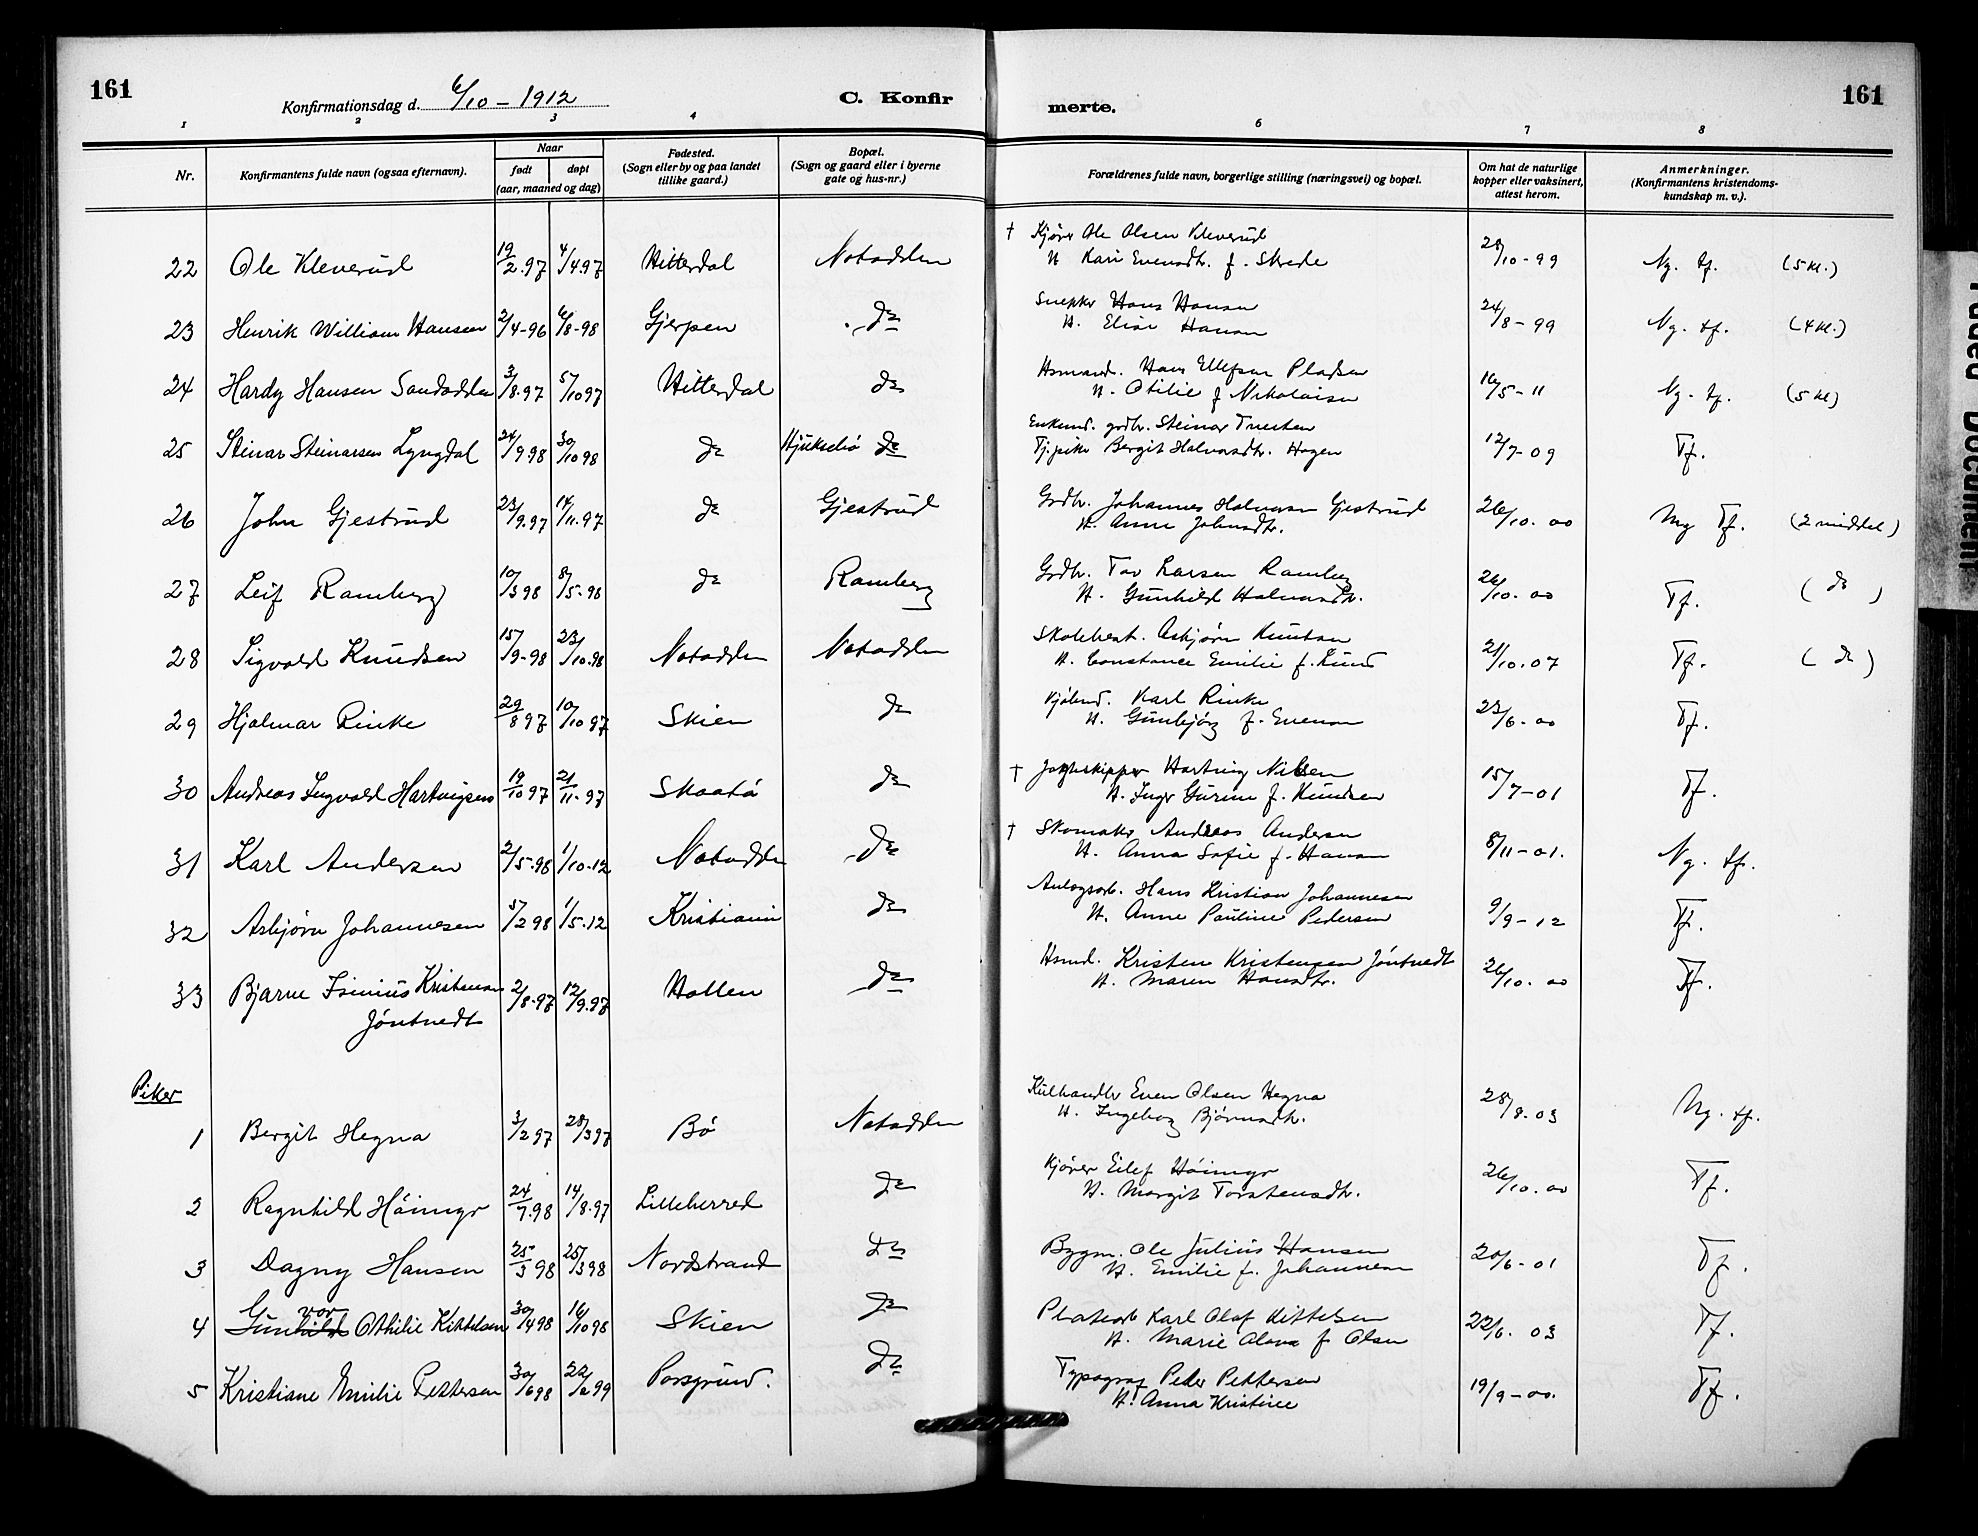 161
Konfirmationsdag d. 6/10 - 1912
C. Konfir
merte.
161
1 2 3 4 6 7 8
Nr.
Konfirmantens fulde navn (ogsaa efternavn).
Naar
født døpt
(aar, maaned og dag)
Fødested.
(Sogn eller by og paa landet
tillike gaard.)
Bopæl.
(Sogn og gaard eller i byerne
gate og hus-nr.)
Forældrenes fulde navn, borgerlige stilling (næringsvei) og bopæl.
Om hat de naturlige
kopper eller vaksinert,
attest herom.
Anmerkninger.
(Konfirmantens kristendoms-
kundskap m. v.).
† Kjører Ole Olsen Kleverud
22 Ole Kleverud 19/2.97 4/4.97 Hitterdal Notodden H. Kari Evensdtr. f. Skrede 28/10-99 Ng. tf. (5 kl.)
Snekker Hans Hansen
23 Henrik William Hansen 2/4-96 6/8-98 Gjerpen do H. Elise Hansen 24/8-99 Ng. tf. (4 kl.)
Hsmand. Hans Ellefsen Pladsen
24 Hardy Hansen Sandodden 3/8.97 5/10 97 Hitterdal do H. Otilie f Nikolaisen 16/5-11 Ng. tf. (5 kl)
Enkemd. grdbr. Steinar Tveiten
25 Steinar Steinarsen Lyngdal 24/9.98 30/10 98 do Hjuksebø do Tj.pike Bergit Halvorsdtr. Hagen 12/7-09 Tf.
Grdbr. Johannes Halvorsen Gjestrud
26 John Gjestrud 23/9.97 14/11.97 do Gjestrud H. Anne Johnsdtr. 26/10.00 Mg Tf. (2 middel)
Grdbr. Tov Larsen Ramberg
27 Leif Ramberg 10/3 98 8/5-98 do Ramberg H. Gunhild Halvorsdtr. 26/10.00 Tf. (do)
Skolebest. Asbjørn Knutsen
28 Sigvald Knudsen 15/9-98 23/10.98 Notodden Notodden H. Constance Emilie f. Lund 21/10.07 Tf. (do)
Kjøbmd. Karl Rinke
29 Hjalmar Rinke 29/8 97 10/10 97 Skien do H. Gunbjørg f. Evensen 23/6.00 Tf.
† Jagteskipper Hartvig Nilsen
30 Andreas Ingvald Hartvigsen 19/10 97 21/11-97 Skaatø do H. Inger Gurine f. Knudsen 15/7-01 Tf.
† Skomaker Andreas Andersen
31 Karl Andersen 2/5.98 1/10-12 Notodden do H. Anna Sofie f. Hansen 8/11-01. Ng. tf.
Anlægsarb. Hans Kristian Johannesen
32 Asbjørn Johannesen 5/2 98 1/5.12 Kristiania do H. Anne Pauline Pedersen 9/9-12 Tf.
Hsmd. Kristen Kristensen Jøntvedt
33 Bjarne Kristensen 2/8.97 12/9.97 Hollen do H. Maren Hansdtr. 26/10.00 Tf.
Jøntvedt
Piker
Kulhandler Even Olsen Hegna
1 Bergit Hegna 3/2 97 28/3 97 Bø Notodden H. Ingeborg Bjørnsdtr. 28/8.03 Ng. tf.
Kjører Eilef Höimyr
2 Ragnhild Höimyr 24/7.98 14/8.97 Lilleherred do H. Margit Torstensdtr. 26/10.00 Tf.
Bygm. Ole Julius Hansen
3 Dagny Hansen 25/3 98 25/3 98 Nordstrand do H. Emilie f. Johannesen 20/6-01 Tf.
Karl Olaf Kittelsen
4 Gunhild vor Othilie Kittelsen 30/4 98 16/10 98 Skien do H. Marie f Olsen 22/6.03 Tf.
Typograf Peder Pettersen
5 Kristiane Emilie Pettersen 30/6 98 22/2 99 Porsgrund. do H. Anna Kristine 19/9-00. Tf.